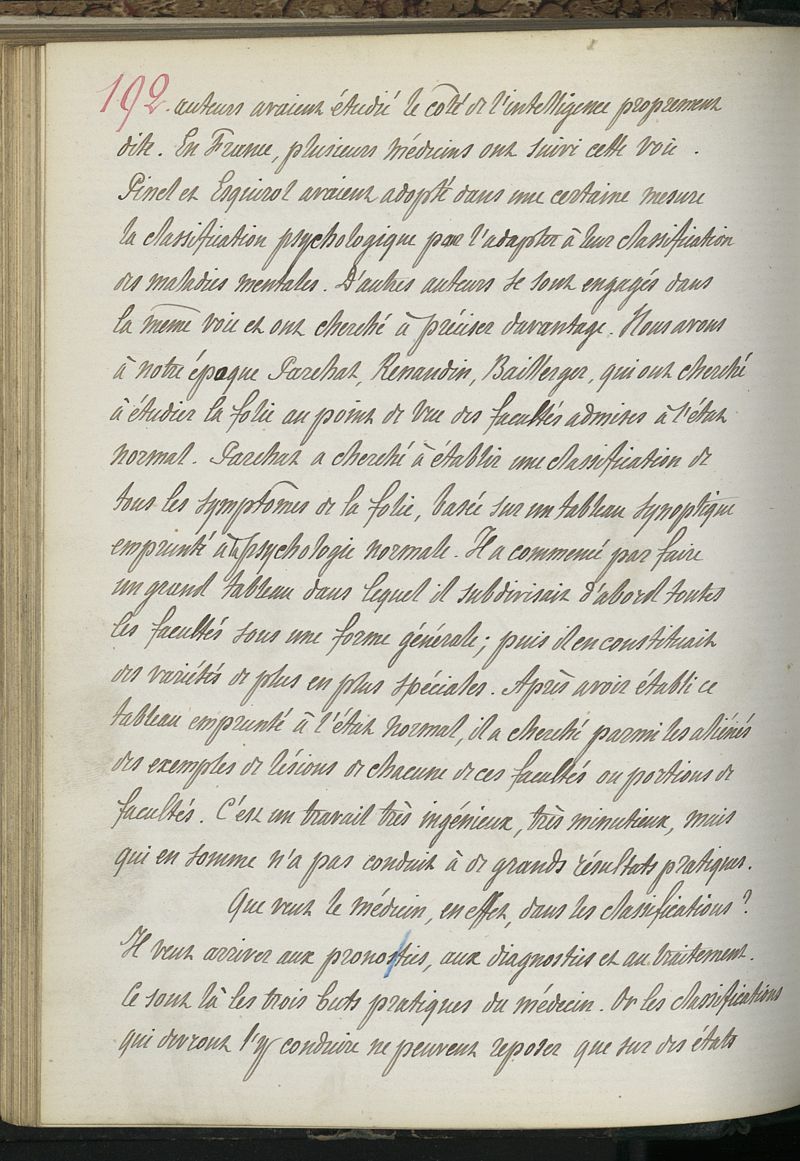 192. auteurs avaient étudié le côté de l'intelligence proprement
dite. En France, plusieurs médecins ont suivi cette voie.
Pinel et Esquirol avaient adopté dans une certaine mesure
la classification psychologique par l'adapter à leur classification
des maladies mentales. D'autres auteurs se sont engagés dans
la même voie et ont cherché à préciser davantage. Nous avons
à notre époque Parchat, Renaudin, Baillarger, qui ont cherché
à étudier la folie au point de vue des facultés admises à l'état
normal. Parchat a cherché à établir une classification de
tous les symptômes de la folie, basée sur un tableau synoptique
emprunté à la psychologie normale. Il a commencé par faire
un grand tableau dans lequel il subdivisait d'abord toutes
les facultés sous une forme générale ; puis il en constituait
des variétés de plus en plus spéciales. Après avoir établi ce
tableau emprunté à l'état normal, il a cherché parmi les aliénés
des exemples de lésions de chacune de ces facultés ou portions de
facultés. C'est un travail très ingénieux, très minutieux, mais
qui en somme n'a pas conduit à de grands résultats pratiques.
Que veut le médecin, en effet, dans les classifications ?
Il veut arriver aux pronostics, aux diagnostics et au traitement.
Ce sont là les trois buts pratiques du médecin. Or les classifications
qui devront l'y conduire ne peuvent reposer que sur des états